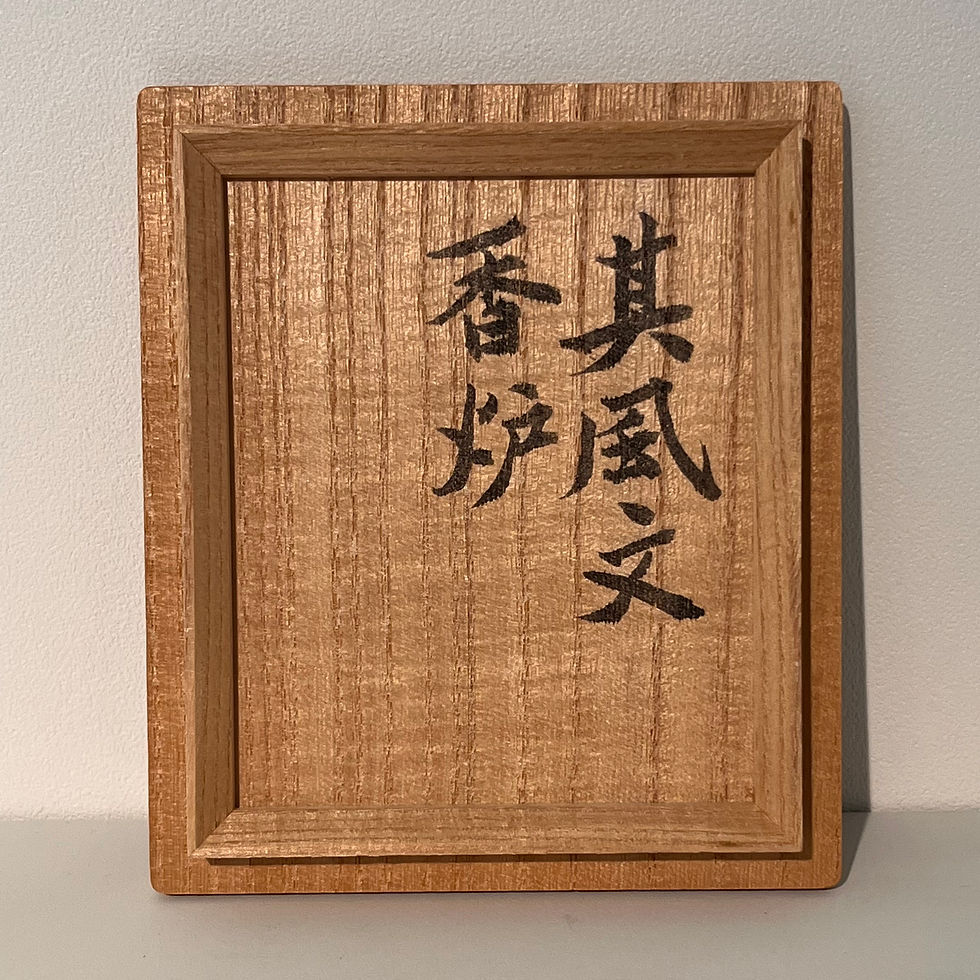 其風文
香炉